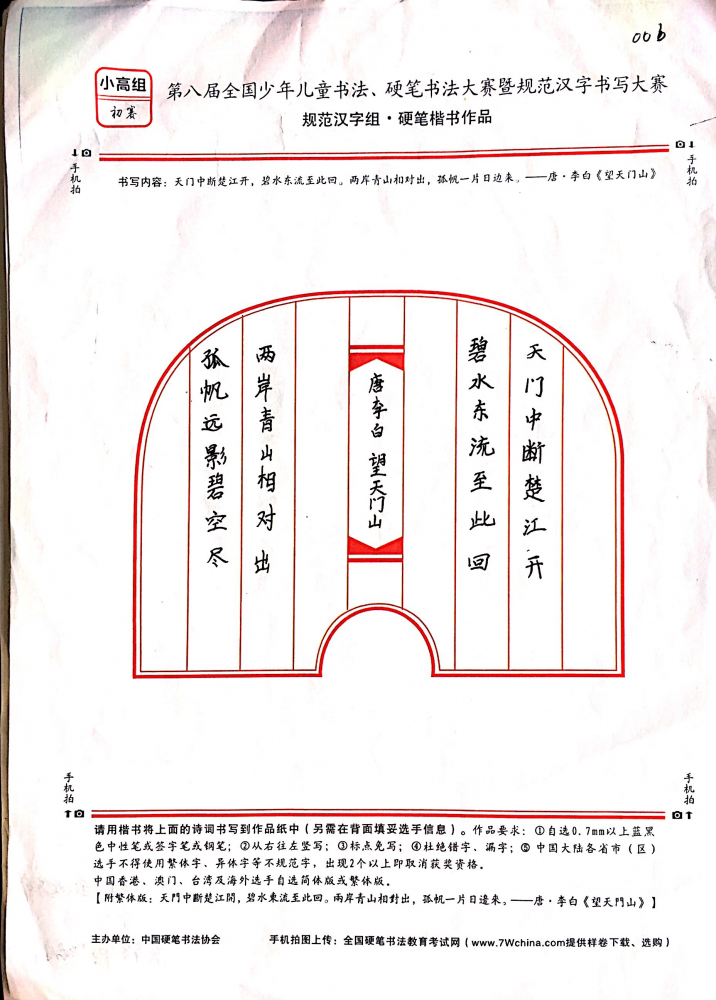 006
小高组
初赛
第八届全国少年儿童书法、硬笔书法大赛暨规范汉字书写大赛
规范汉字组·硬笔楷书作品
手机拍
手机拍
书写内容：天门中断楚江开，碧水东流至此回。两岸青山相对出，孤帆一片日边来。——唐·李白《望天门山》
天门中断楚江开
碧水东流至此回
唐李白 望天门山
两岸青山相对出
孤帆远影碧空尽
手机拍
手机拍
请用楷书将上面的诗词书写到作品纸中（另需在背面填妥选手信息）。作品要求：①自选0.7mm以上蓝黑
色中性笔或签字笔或钢笔；②从右往左竖写；③标点免写；④杜绝错字、漏字；⑤中国大陆各省市（区）
选手不得使用繁体字、异体字等不规范字，出现2个以上即取消获奖资格。
中国香港、澳门、台湾及海外选手自选简体版或繁体版。
【附繁体版：天門中斷楚江開，碧水東流至此回。兩岸青山相對出，孤帆一片日邊來。——唐·李白《望天門山》】
主办单位：中国硬笔书法协会
手机拍图上传：全国硬笔书法教育考试网（www.7Wchina.com提供样卷下载、选购）